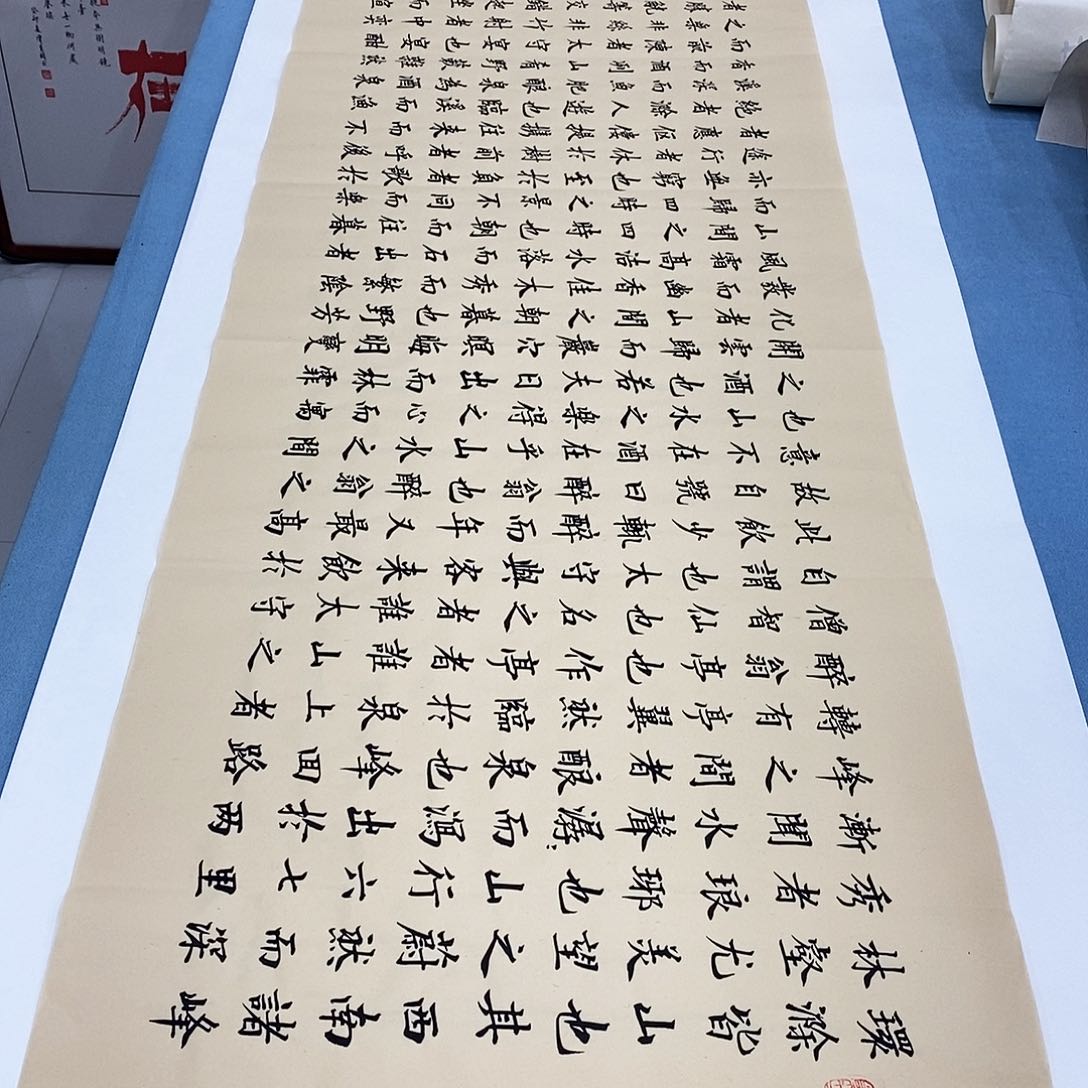 環滁皆山也其西南諸峰
林壑尤美望之蔚然而深
秀者琅琊也山行六七里
漸聞水聲潺々而瀉出於兩
峰之間者釀泉也峰回路
轉有亭翼然臨於泉上者
醉翁亭也作亭者誰山之
僧智仙也名之者誰太守
自謂也太守與客來飲於
此飲少輒醉而年又最高
故自號曰醉翁也醉翁之
意不在酒在乎山水之間
也山水之樂得之心而寓
之酒也若夫日出而林霏
開雲歸而巖穴暝晦明變
化者山間之朝暮也野芳
發而幽香佳木秀而繁陰
風霜高洁水落而石出者
山間之四時也朝而往暮
而歸四時之景不同而樂
亦無窮也至於負者歌於
途行者休於樹前者呼後
者應傴僂提攜往來而不
絕者滁人遊也臨溪而漁
溪深而魚肥釀泉為酒泉
香而酒洌山肴野蔌雜然
而前陳者太守宴也宴酣
之樂非絲非竹射者中弈
者勝觥籌交錯起坐而